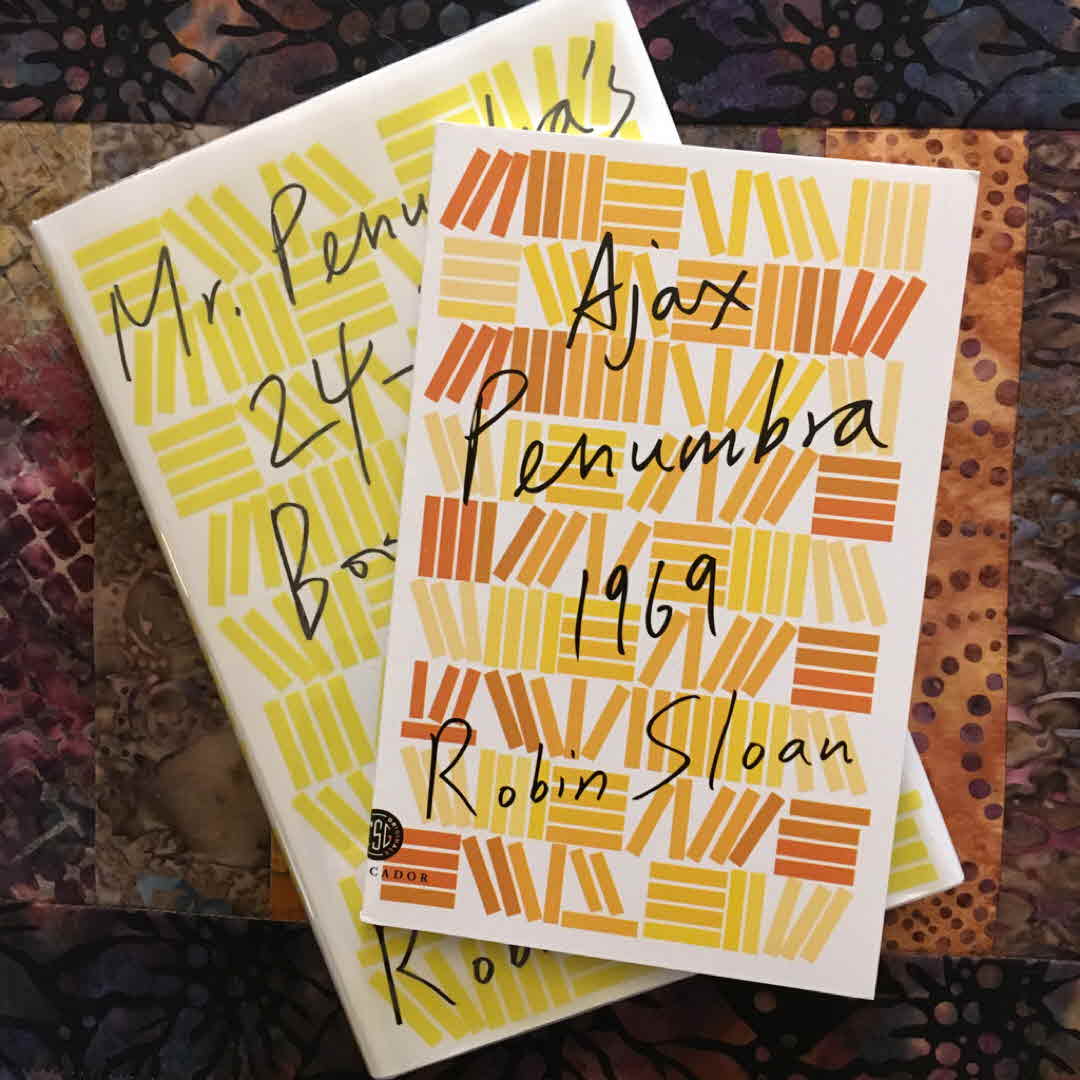 Mr. Penu ba's
24-
Boo
Rob
Ajax
Penumbra
1969
Robin Sloan
FSG
ORIGINALS
CADOR